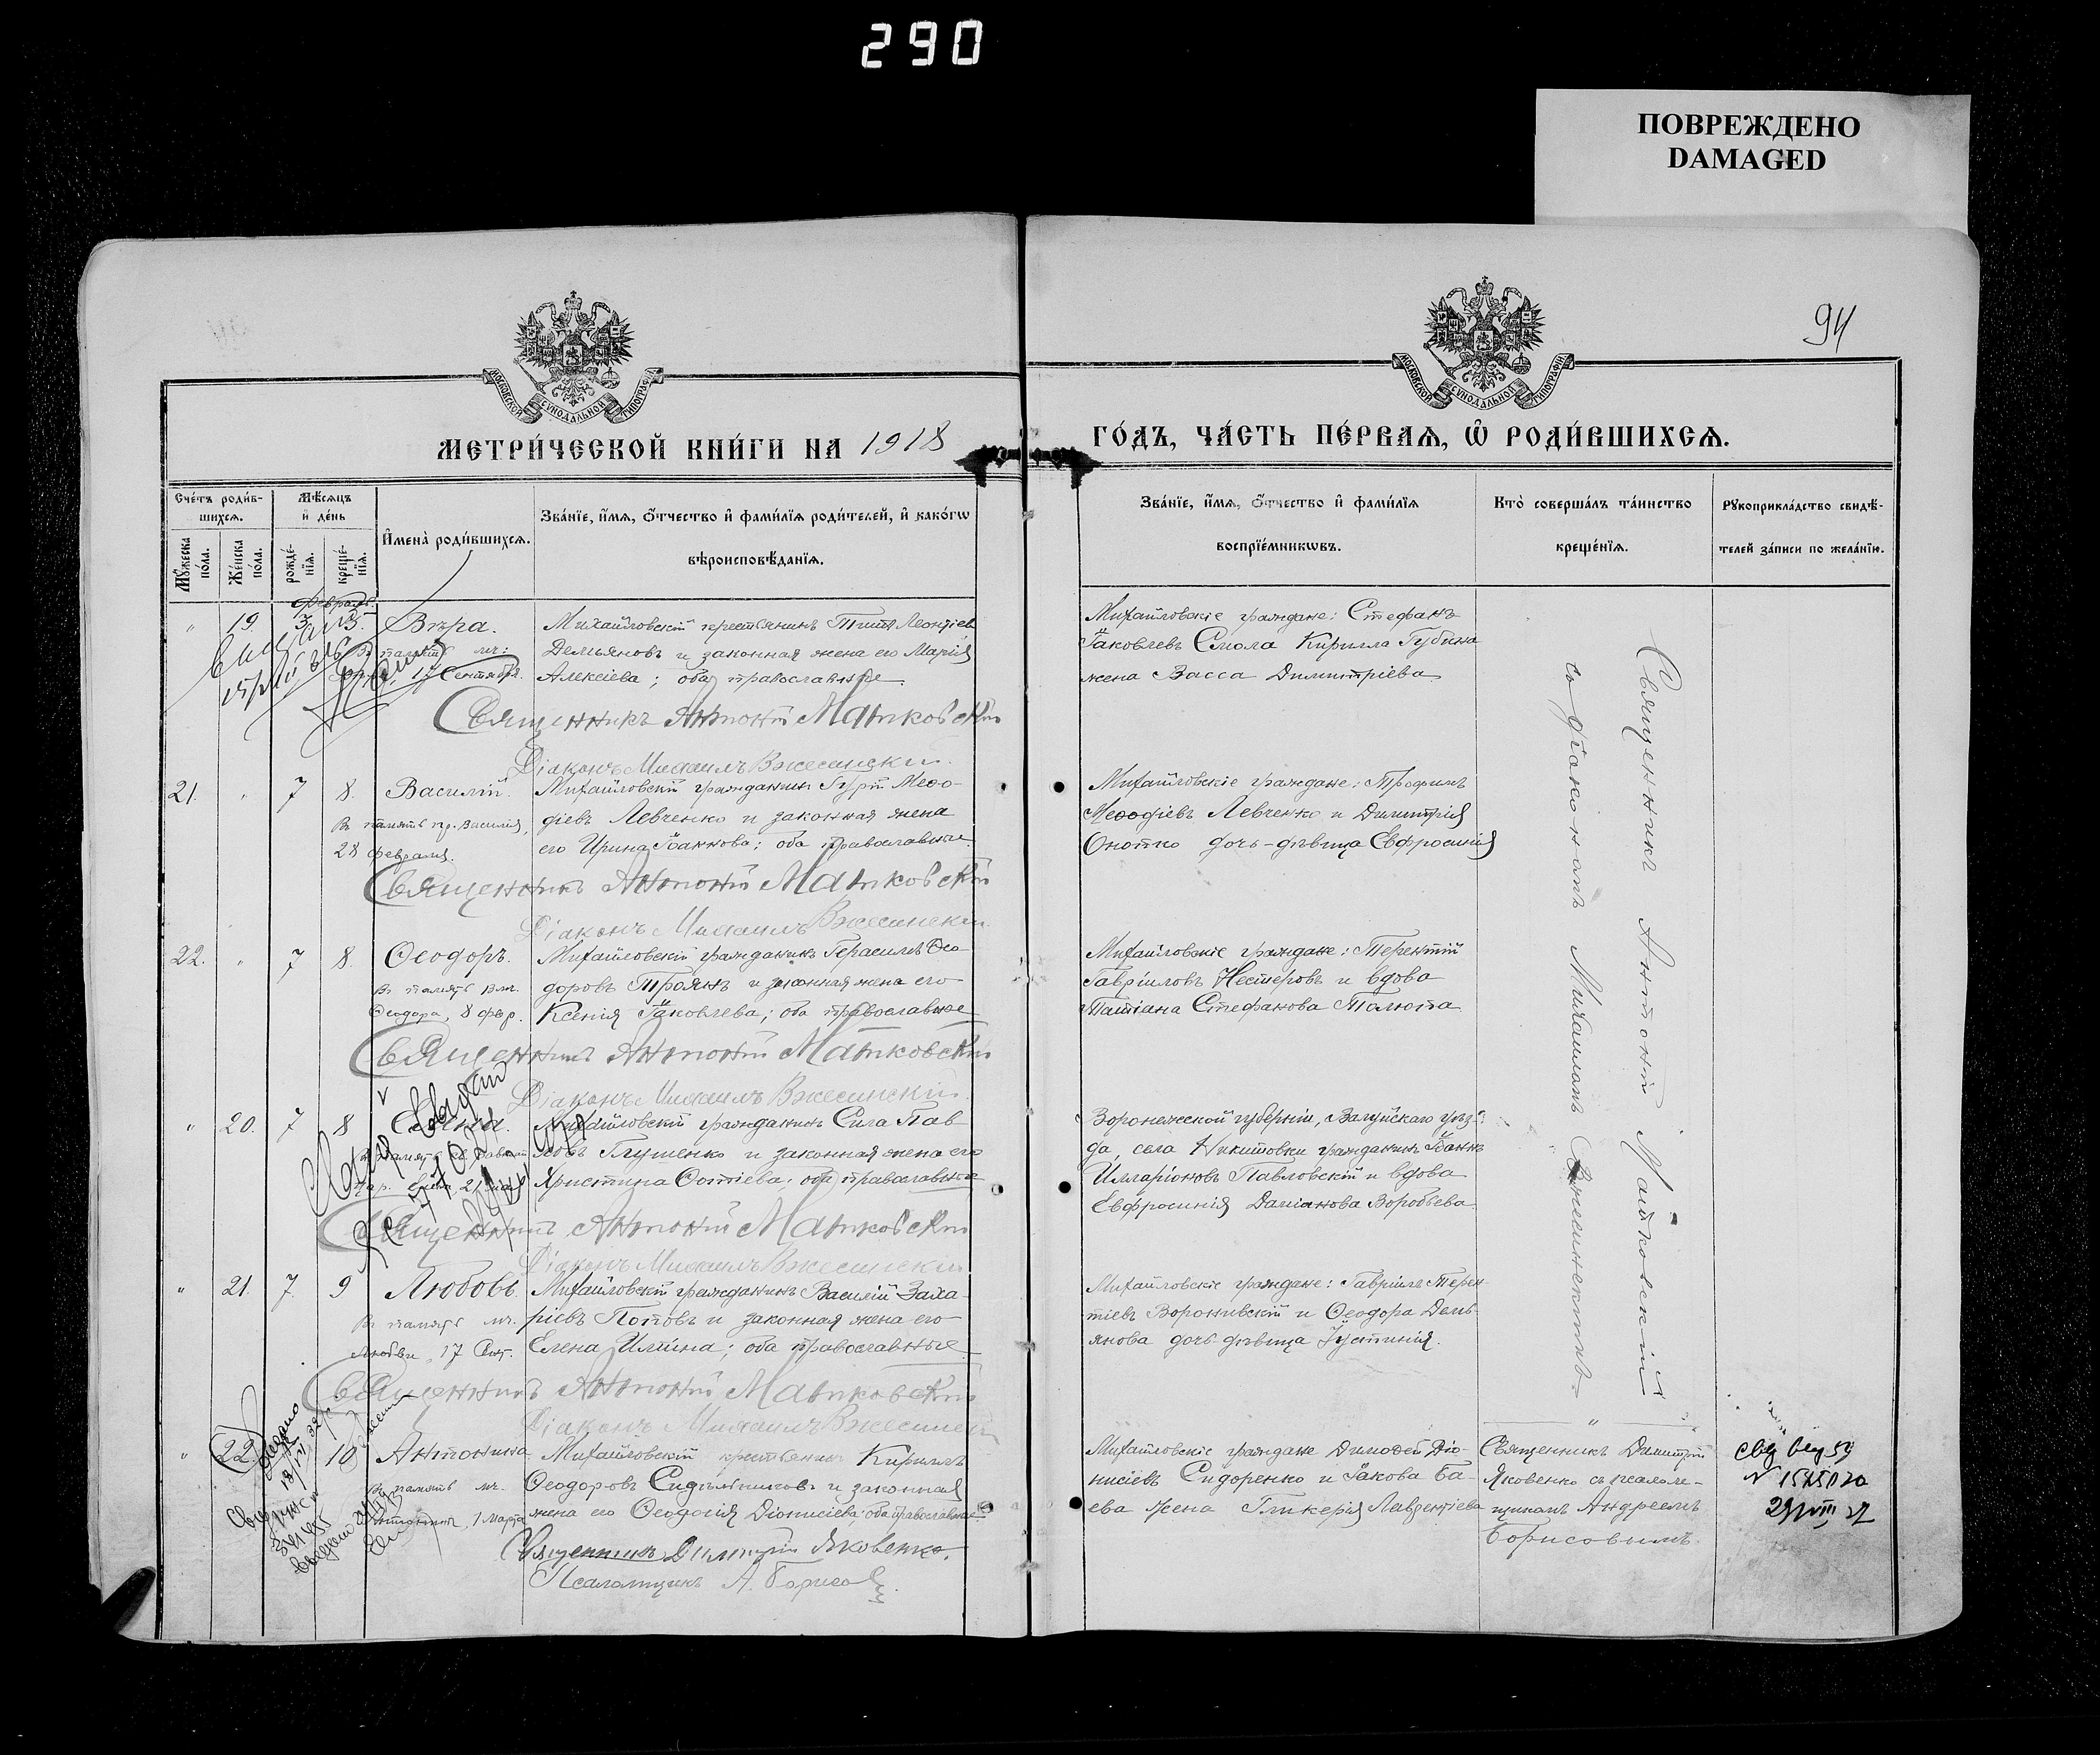 290
ПОВРЕЖДЕНО
DAMAGED
94
МОСКОВСКОЙ СУНОДАЛЬНОЙ ТИПОГРАФІИ
МОСКОВСКОЙ СУНОДАЛЬНОЙ ТИПОГРАФІИ
МЕТРИ́ЧЕСКОЙ КНИ́ГИ НА 1918
ГО́ДЪ, ЧА́СТЬ ПЕ́РВАѦ, Ѡ҆ РОДИ́ВШИХСѦ.
Сче́тъ роди́в-
шихсѧ.
Мѣ́сѧцъ
и҆ де́нь
Мꙋ́жеска по́ла.
Же́нска по́ла.
рожде́-
нїѧ.
креще́-
нїѧ.
И҆мена̀ роди́вшихсѧ.
Зва́нїе, и҆́мѧ, ѻ҆́тчество и҆ фами́лїѧ роди́телей, и҆ како́гѡ
вѣроисповѣ́данїѧ.
Зва́нїе, и҆́мѧ, ѻ҆́тчество и҆ фами́лїѧ
воспрїе́мникѡвъ.
Кто̀ соверша́лъ та́инство
креще́нїѧ.
Рꙋкоприкла́дство свидѣ́-
телей за́писи по жела́нїю.
Февраль.
" 19. 3. 3. Вѣра.
Михайловскій крестьянинъ Титъ Леонтіев
Демьяновъ и законная жена его Марія
17 Сентября. Алексіева; оба православные.
Священникъ Антоній Матковскій
Діаконъ Михаилъ Вжесинскій.
Михайловскіе граждане: Стефанъ
Іаковлевъ Смола Кирилла Губина
жена Васса Димитріева
21. " 7 8 Василій.
Въ память пр. Василія,
28 февраля.
Михайловскій гражданинъ Гурій Меѳо-
діевъ Левченко и законная жена
его Ирина Іоаннова; оба православные.
Священникъ Антоній Матковскій
Діаконъ Михаилъ Вжесинскій
Михайловскіе граждане: Трофимъ
Меѳодіевъ Левченко и Димитрія
Онотко дочь-дѣвица Евфросинія
22. " 7 8. Ѳеодоръ.
Въ память влм.
Ѳеодора, 8 фев.
Михайловскій гражданинъ Герасимъ Ѳео-
доровъ Троянъ и законная жена его
Ксенія Іаковлева; оба православные
Священникъ Антоній Матковскій
Діаконъ Михаилъ Вжесинскій.
Михайловскіе граждане: Терентій
Гавріиловъ Нестеровъ и вдова
Татіана Стефанова Талюта
" 20. 7 8 Елена.
Михайловскій гражданинъ Сила Пав
ловъ Глущенко и законная жена его
Христина Фотіева; оба православные
Священникъ Антоній Матковскій
Діаконъ Михаилъ Вжесинскій
Воронежской губерніи, Валуйскаго уѣз-
да, села Никитовки гражданинъ Іоаннъ
Илларіоновъ Павловскій и вдова
Евфросинія Даміанова Воробьева.
" 21. 7. 9 Любовь.
Въ память мч.
Любви, 17 Сент.
Михайловскій гражданинъ Василій Заха
ріевъ Потовъ и законная жена его
Елена Иліина; оба православные
Священникъ Антоній Матковскій
Діаконъ Михаилъ Вжесинскій
Михайловскіе граждане: Гавріилъ Терен-
тіевъ Воронивскій и Ѳеодора Демь
янова дочь дѣвица Іустинія.
Священникъ Антоній Матковскій
съ діакономъ Михаиломъ Вжесинскимъ
" 22. 10 Антонина
Въ память мч.
Антонины, 1 Марта
Михайловскій крестьянинъ Кириллъ
Ѳеодоровъ Сидѣльниковъ и законная
жена его Ѳеодосія Діонисіева; оба православные
Священникъ Димитрій Яковенко.
Псаломщикъ А. Борисов
Михайловскіе граждане Тимоѳей Діо-
нисіевъ Сидоренко и Іакова Ба-
ева жена Гликерія Лаврентіева
Священникъ Димитрій
Яковенко съ псалом-
щикомъ Андреемъ
Борисовымъ.